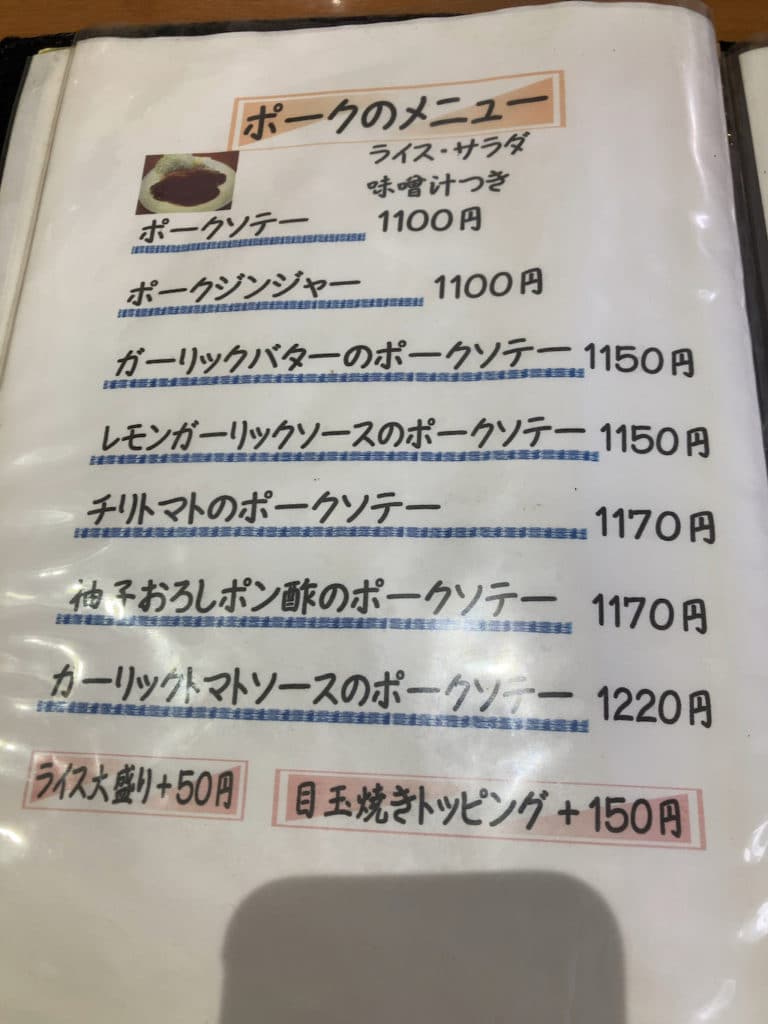 ポークのメニュー
ライス・サラダ
味噌汁つき
ポークソテー 1100円
ポークジンジャー 1100円
ガーリックバターのポークソテー 1150円
レモンガーリックソースのポークソテー 1150円
チリトマトのポークソテー 1170円
柚子おろしポン酢のポークソテー 1170円
ガーリックトマトソースのポークソテー 1220円
ライス大盛り+50円
目玉焼きトッピング +150円